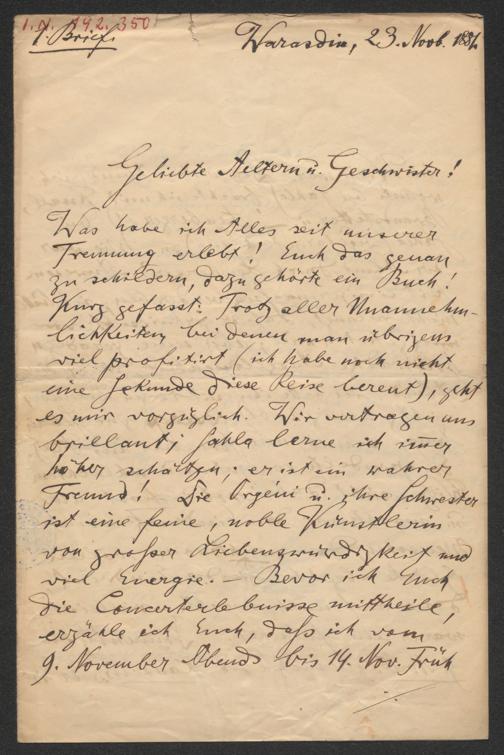 I.N. 192.350
1. Brief.
Warasdin, 23. Novb. 1881
Geliebte Aeltern u. Geschwister!
Was habe ich Alles seit unserer
Trennung erlebt! Euch das genau
zu schildern, dazu gehörte ein Buch!
Kurz gefasst: Trotz aller Unannehm-
lichkeiten, bei denen man übrigens
viel profitirt (ich habe noch nicht
eine Sekunde diese Reise bereut), geht
es mir vorzüglich. Wir vertragen uns
brillant; Sahla lerne ich im̅er
höher schätzen; er ist ein wahrer
Freund! Die Orgéni u. ihre Schwester
ist eine feine, noble Künstlerin
von großer Liebenswürdigkeit und
viel Energie. – Bevor ich Euch
die Concerterlebnisse mittheile,
erzähle ich Euch, daß ich vom
9. November Abends bis 14. Nov. Früh